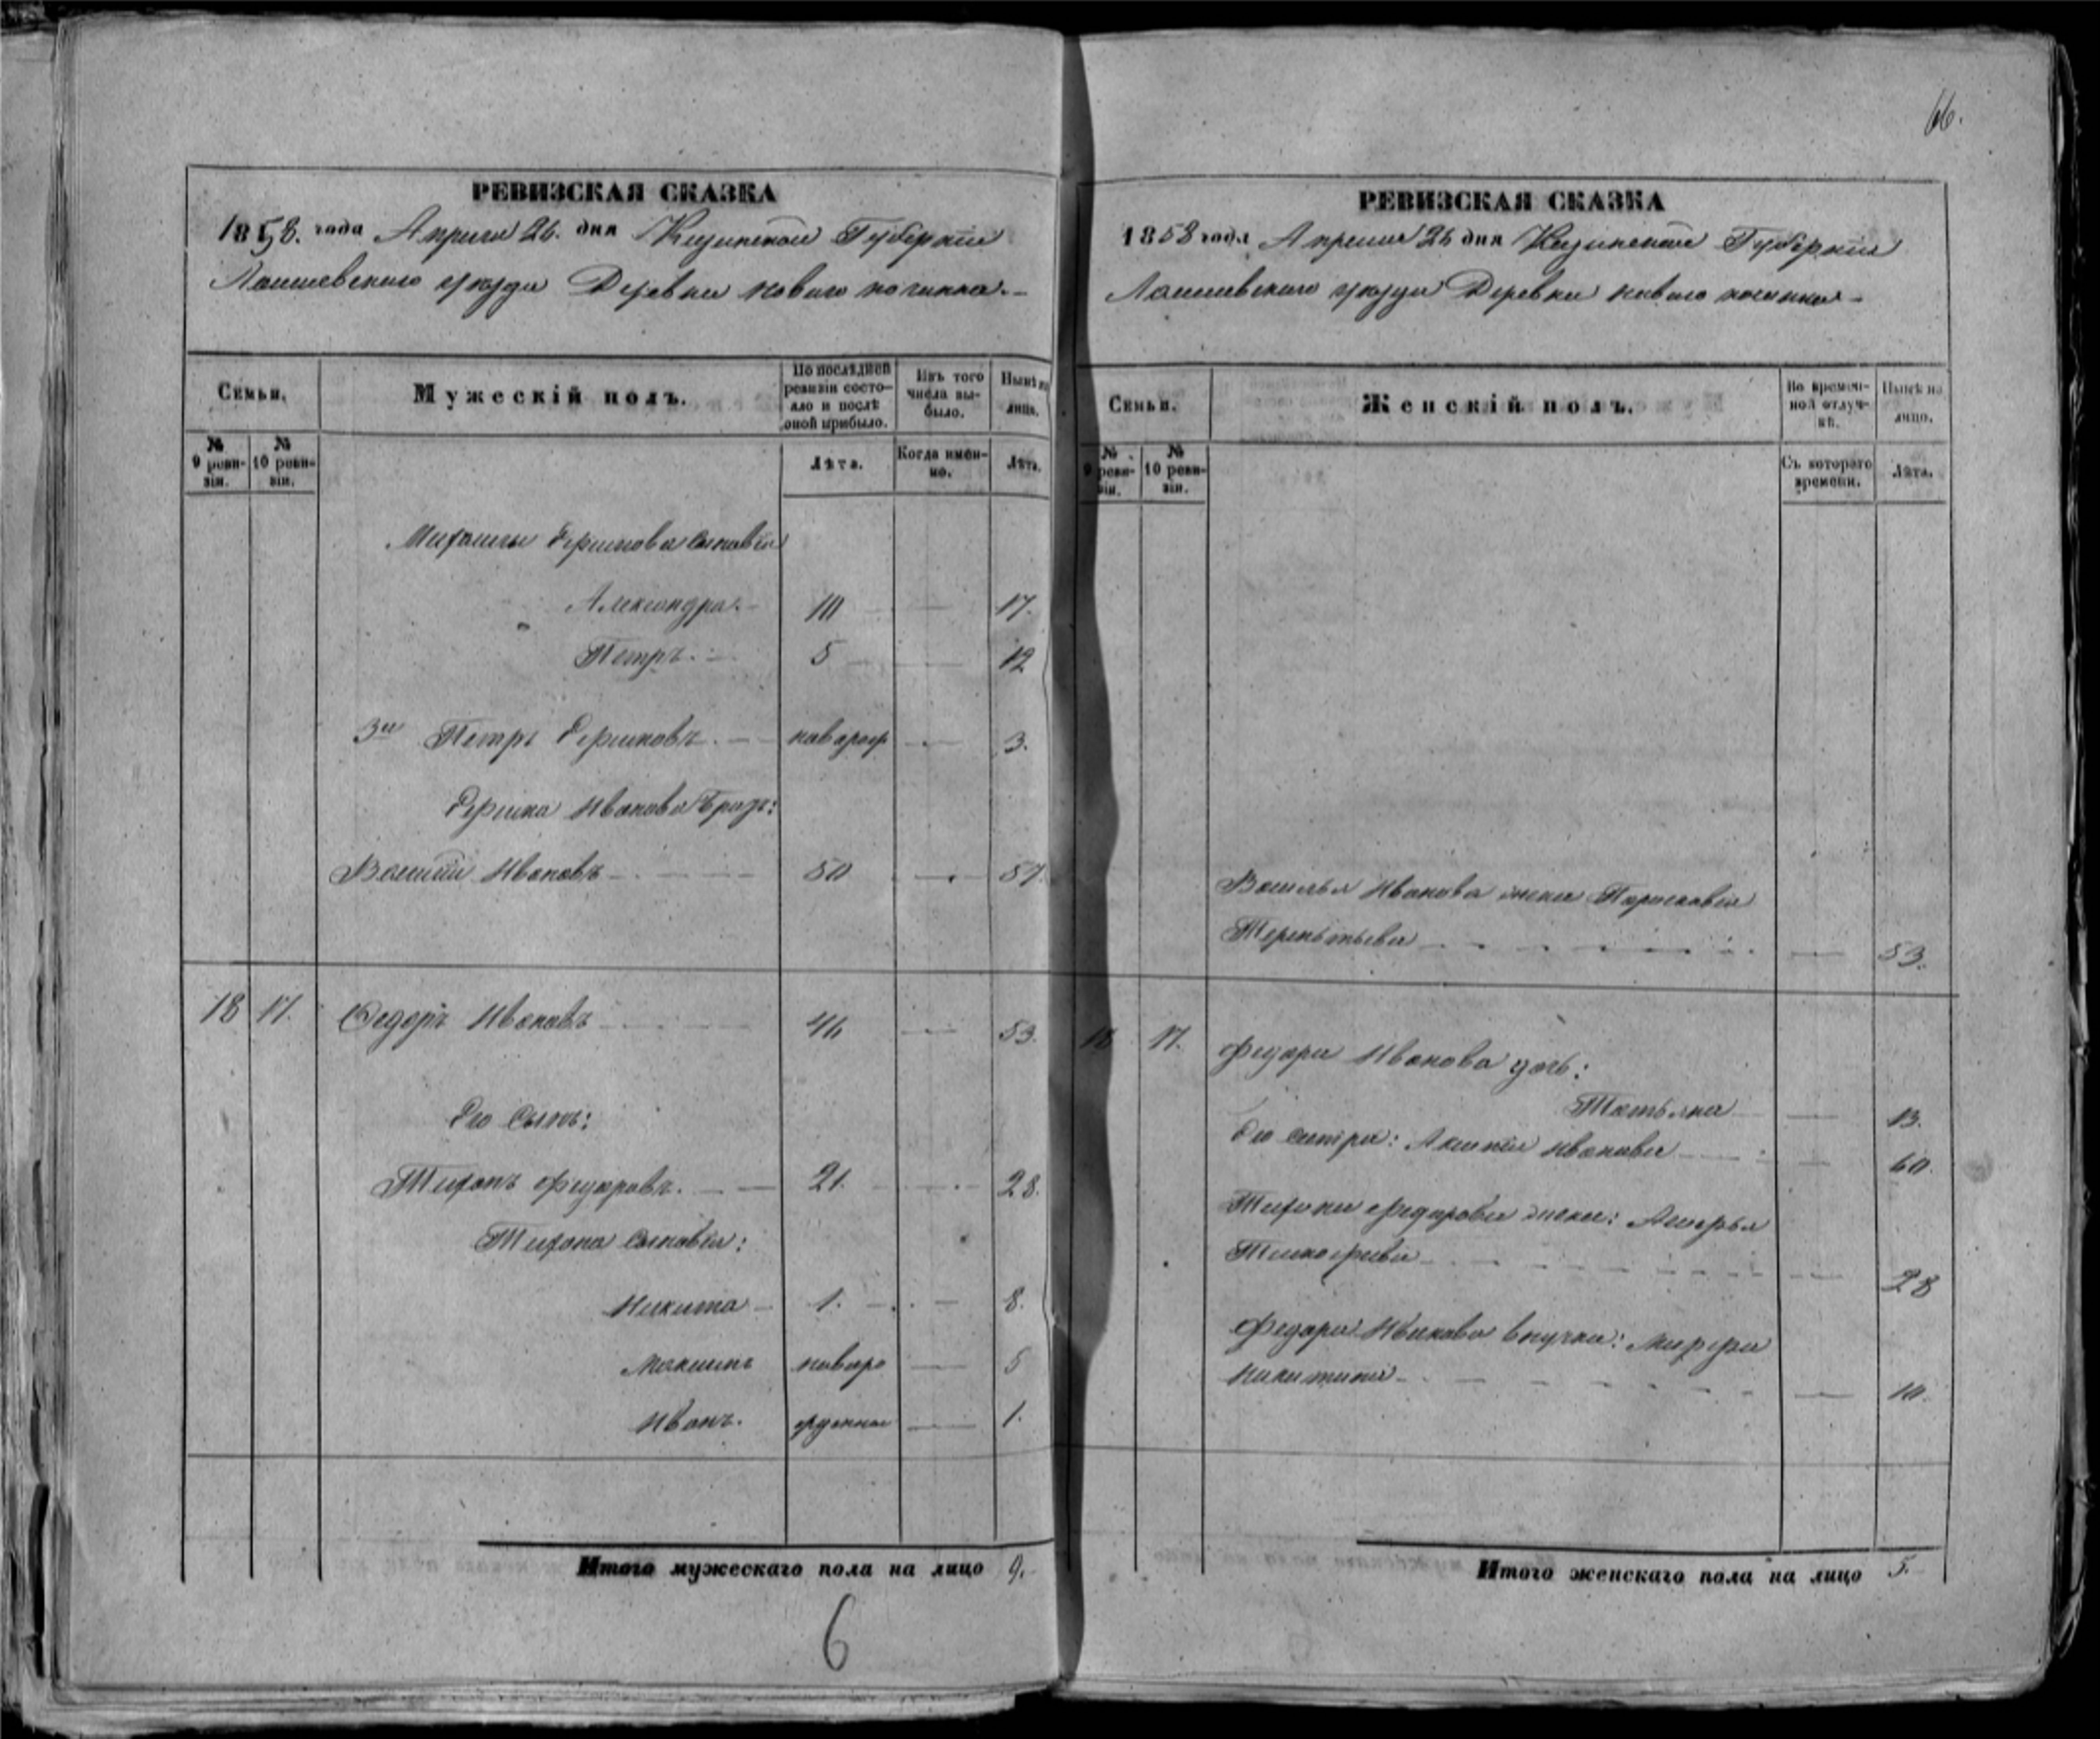 66.
РЕВИЗСКАЯ СКАЗКА
1858. года Апреля 26. дня Казанской Губерніи
Лаишевскаго уѣзда Деревни Новаго починка.
Семьи.
Мужескій полъ.
По послѣдней ревизіи состояло и послѣ оной прибыло.
Изъ того числа выбыло.
Нынѣ на лицо.
№ 9 ревизіи.
№ 10 ревизіи.
Лѣта.
Когда именно.
Лѣта.
сыновья
Александра 10 17.
Петръ 5 12
3й Петръ 3.
Иванова братъ:
Василій Ивановъ 50 57.
18 17. Федоръ Ивановъ 46 53.
Его сынъ:
Тихонъ Федоровъ. 21. 28.
Тихона сыновья:
Никита 1. 8.
Максимъ новоро 5
Иванъ. жденной 1.
Итого мужескаго пола на лицо 9.
6
РЕВИЗСКАЯ СКАЗКА
1858 года Апреля 26 дня Казанской Губерніи
Лаишевскаго уѣзда Деревни новаго починка
Семьи.
Женскій полъ.
Во временной отлучкѣ.
Нынѣ на лицо.
№ 9 ревизіи.
№ 10 ревизіи.
Съ котораго времени.
Лѣта.
Василья Иванова жена Парасковья
Терентьева 53.
18 17. Федора Иванова дочь:
Татьяна 13.
Его сестра: Иванова 60.
Тихона Федорова жена:
Тимофеева 28
Федора Иванова внучка: Марфа
Никитина 10.
Итого женскаго пола на лицо 5.